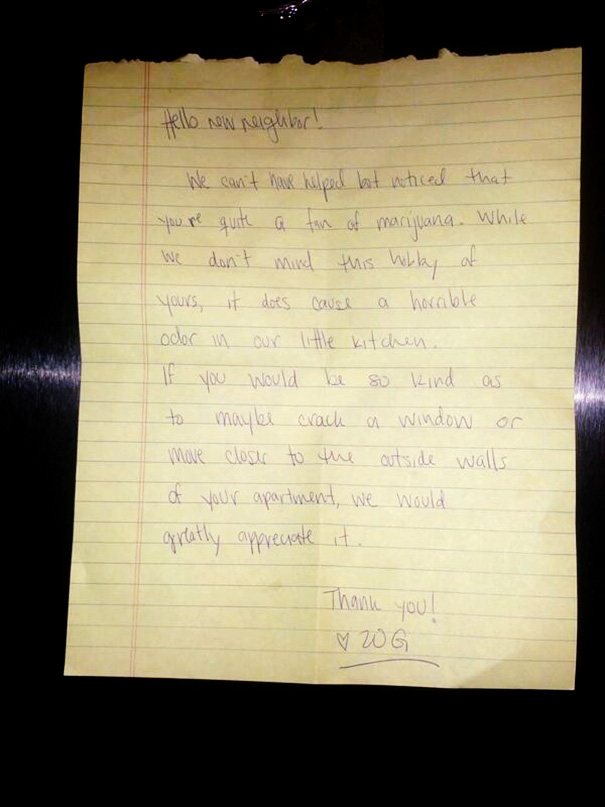 Hello new neighbor!
We can't have helped but noticed that
you're quite a fan of marijuana. While
we don't mind this hobby of
yours, it does cause a horrible
odor in our little kitchen.
If you would be so kind as
to maybe crack a window or
move closer to the outside walls
of your apartment, we would
greatly appreciate it.
Thank you!
♡ 20G